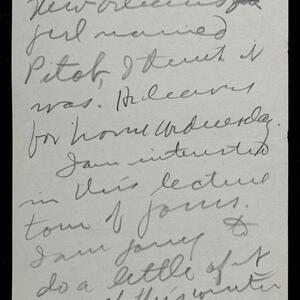 New Orleans
girl named
Pitot, I think it
was. He leaves
for home Wednesday.
I am interested
in this lecture
tour of yours.
I am going to
do a little of it
this winter